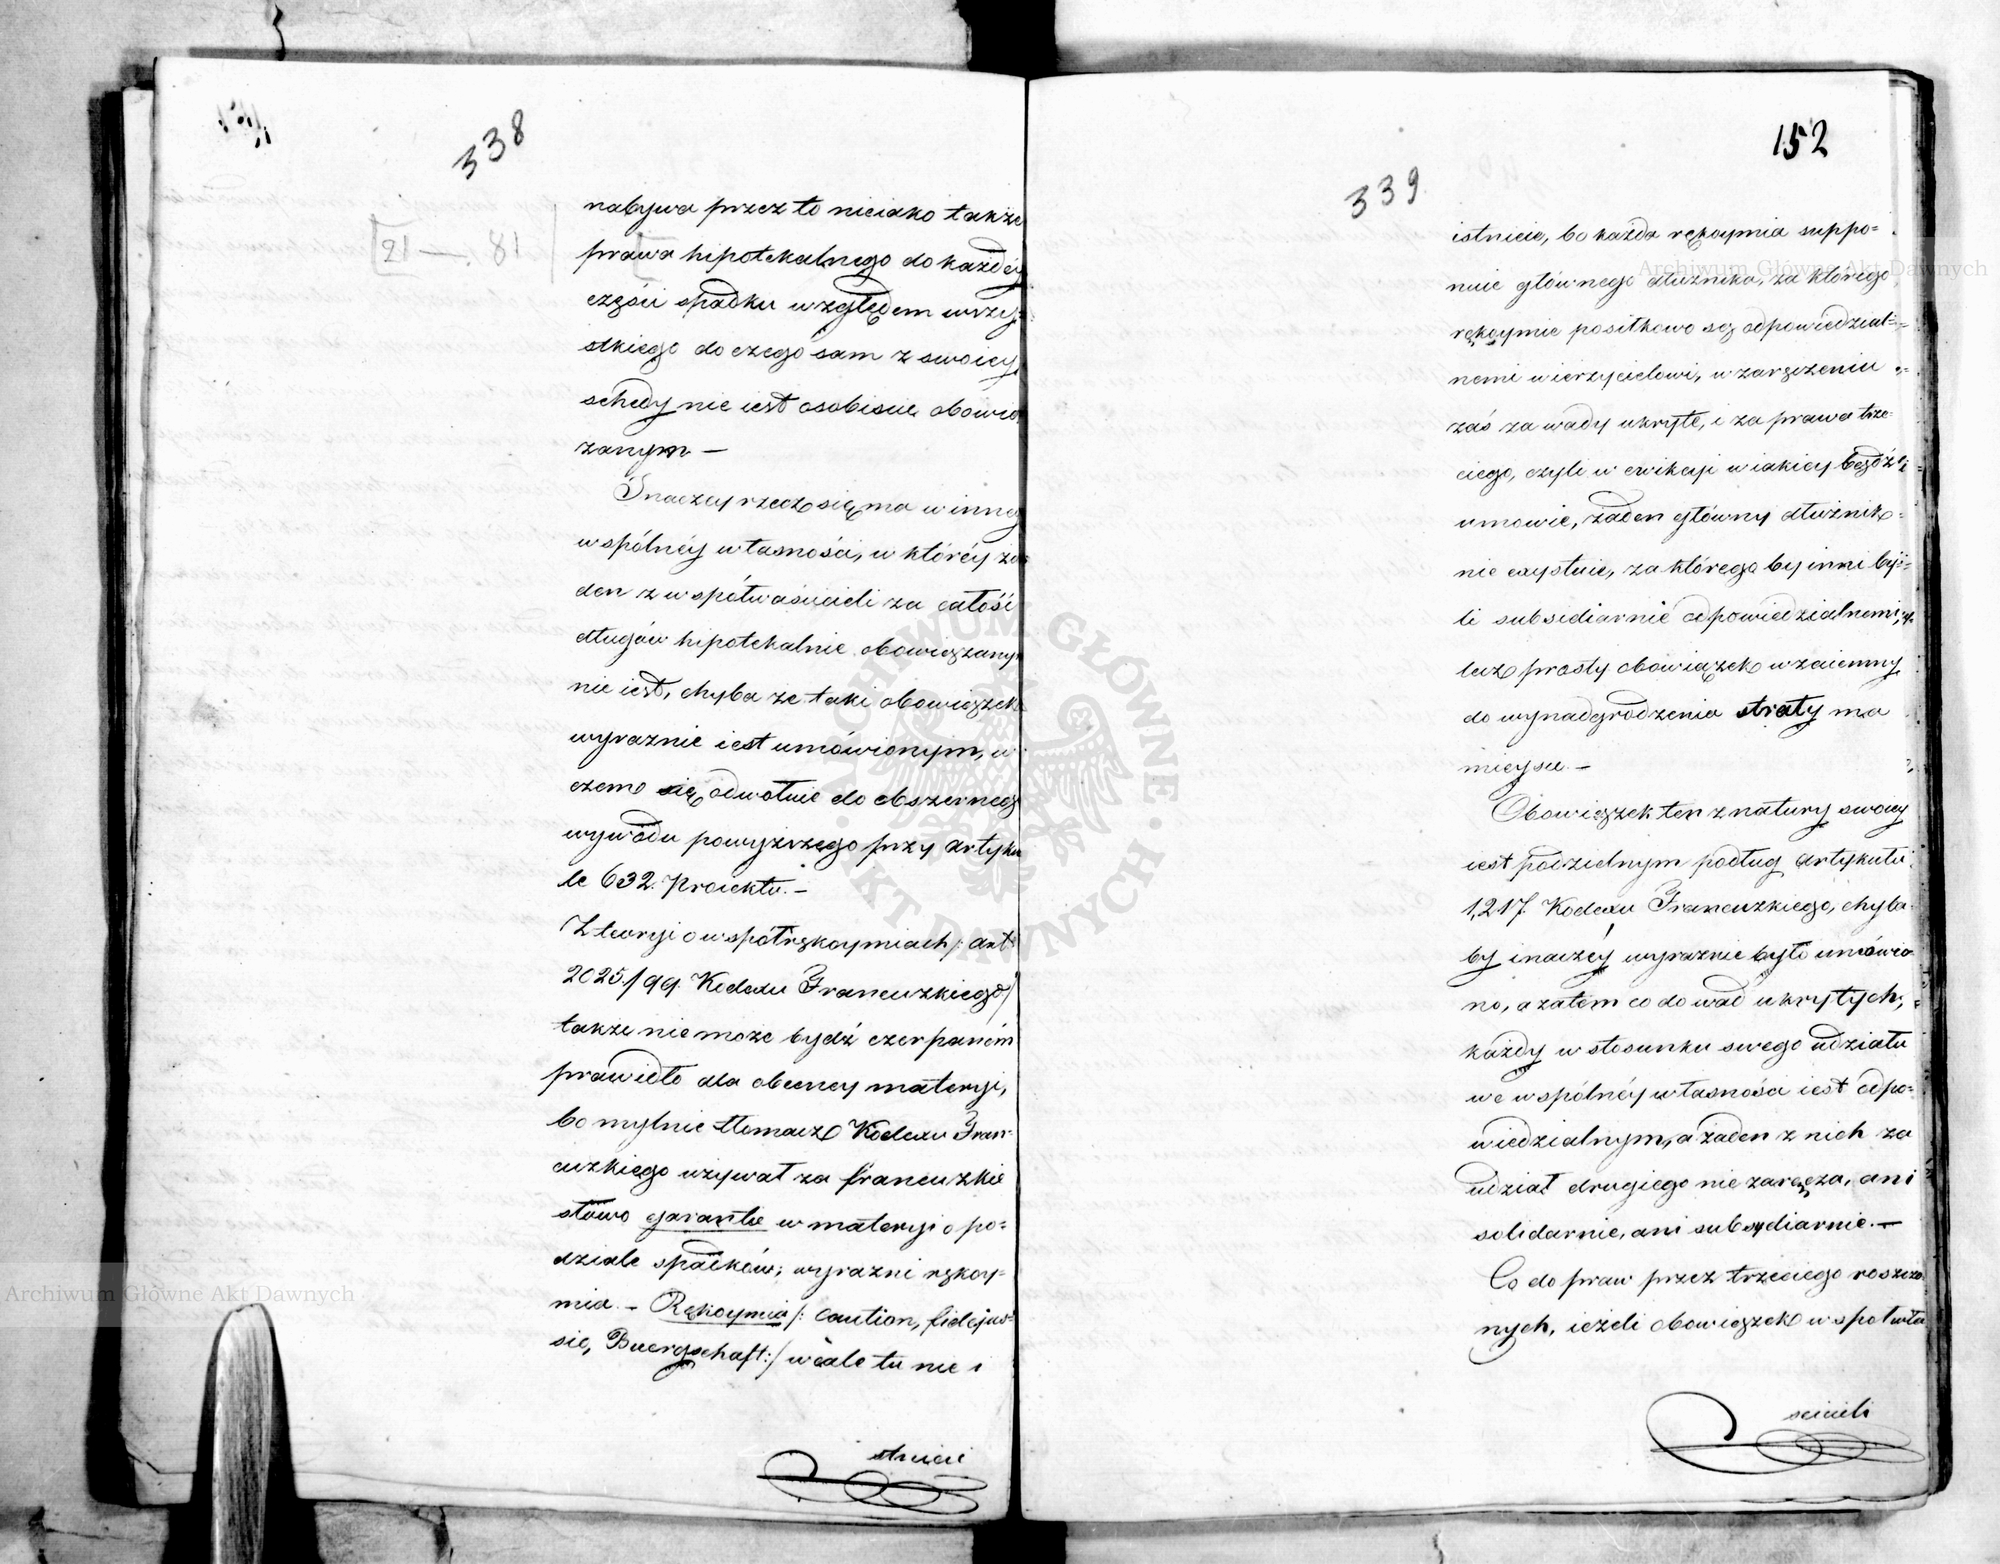 338
nabywa przez to nieiako także
prawa hipotekalnego do każdéy
części spadku względem wszy-
stkiego do czego sam z swoiey
schedy nie iest osobiscie obowią
zanym —
Inaczey rzecz się ma w inney
wspólnéy własności, w któréy ża
den z współwaścicieli za całość
długów hipotekalnie obowiązanym
nie iest, chyba że taki obowiązek
wyraznie iest umówionym, w
czem się odwołuie do obszernego
wywodu powyższego przy artyku
le 632. Proiektu. —
Z teoryi o współrękoymiach /: art:
2025./99. Kodexu Francuzkiego/
także nie może bydź czerpaném
prawidło dla obecney materyi,
bo mylnie tłomacz Kodexu Fran-
cuzkiego używał za francuzkie
słowo garantie w materyi o po-
dziale spadków; wyrazni rękoy-
mia. — Rękoymia /: caution, fidejus-
sie, Buergschaft:/ wcale tu nie i
stnieie
152
339
istnieie, bo każda rękoymia suppo-
nuie głównego dłużnika, za którego
rękoymie positkowo są odpowiedzial-
nemi wierzycielowi, w zaręczeniu
zaś za wady ukryte, i za prawa trze-
ciego, czyli w ewikcyi w iakiey bądź
umowie, żaden główny dłużnik
nie exystuie, za którego by inni by-
li subsidiarnie odpowiedzialnemi,
lecz prosty obowiązek wzaiemny
do wynadgrodzenia straty ma
mieysce. —
Obowiązek ten z natury swoiey
iest podzielnym podług artykułu
1,217. Kodexu Francuzkiego, chyba
by inaczéy wyraznie było umówio
no, a zatem co do wad ukrytych,
każdy w stosunku swego udziału
we wspólnéy własności iest odpo-
wiedzialnym, a żaden z nich za
udział drugiego nie zaręcza, ani
solidarnie, ani subsydiarnie. —
Co do praw przez trzeciego roszczo
nych, ieżeli obowiązek współwła
scicieli
Archiwum Główne Akt Dawnych
Archiwum Główne Akt Dawnych
ARCHIWUM GŁÓWNE · AKT DAWNYCH ·